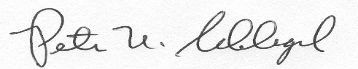 Peter W. Schlegel